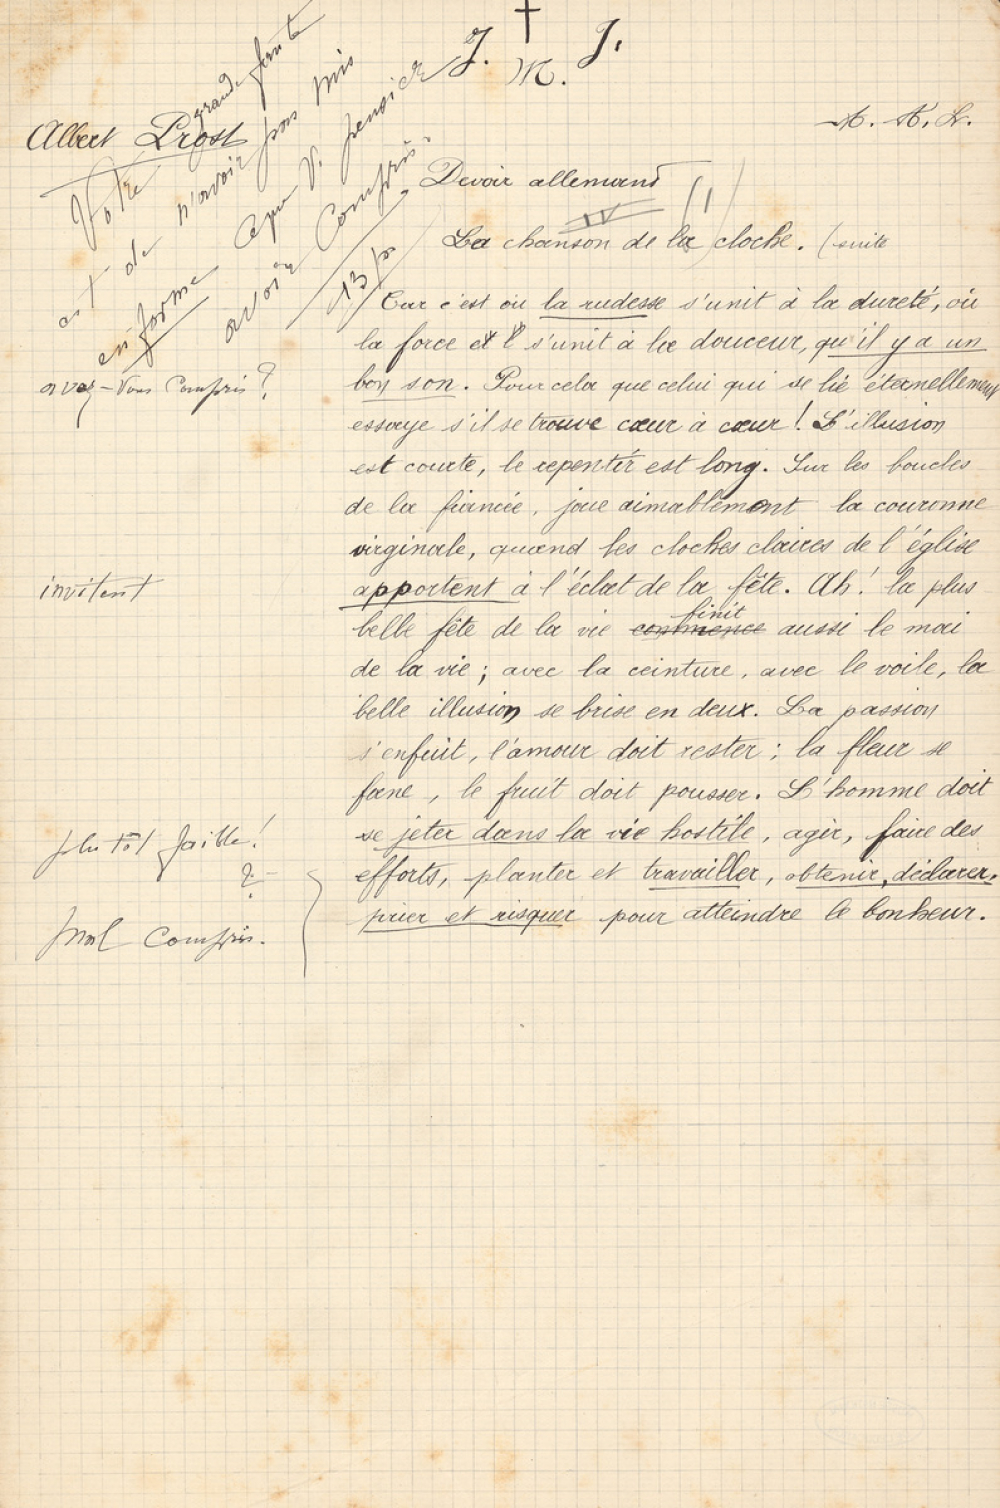 J. † J.
M.
Albert Prost
Votre grande faute
est de n'avoir pas mis
en forme ce que V. pensiez
avoir compris.
13/20
Devoir allemand
IV
La chanson de la cloche. (suite
Car c'est où la rudesse s'unit à la dureté, où
la force et l' s'unit à la douceur, qu'il y a un
avez-vous compris?
bon son. Pour cela que celui qui se lie éternellement
essaye s'il se trouve cœur à cœur! L'illusion
est courte, le repentir est long. Sur les boucles
de la fiancée, joue aimablement la couronne
virginale, quand les cloches claires de l'église
invitent
apportent à l'éclat de la fête. Ah! la plus
belle fête de la vie commence finit aussi le mai
de la vie; avec la ceinture, avec le voile, la
belle illusion se brise en deux. La passion
s'enfuit, l'amour doit rester; la fleur se
fane, le fruit doit pousser. L'homme doit
plutôt faille!
se jeter dans la vie hostile, agir, faire des
?
efforts, planter et travailler, obtenir, déclarer,
prier et risquer pour atteindre le bonheur.
mal compris.